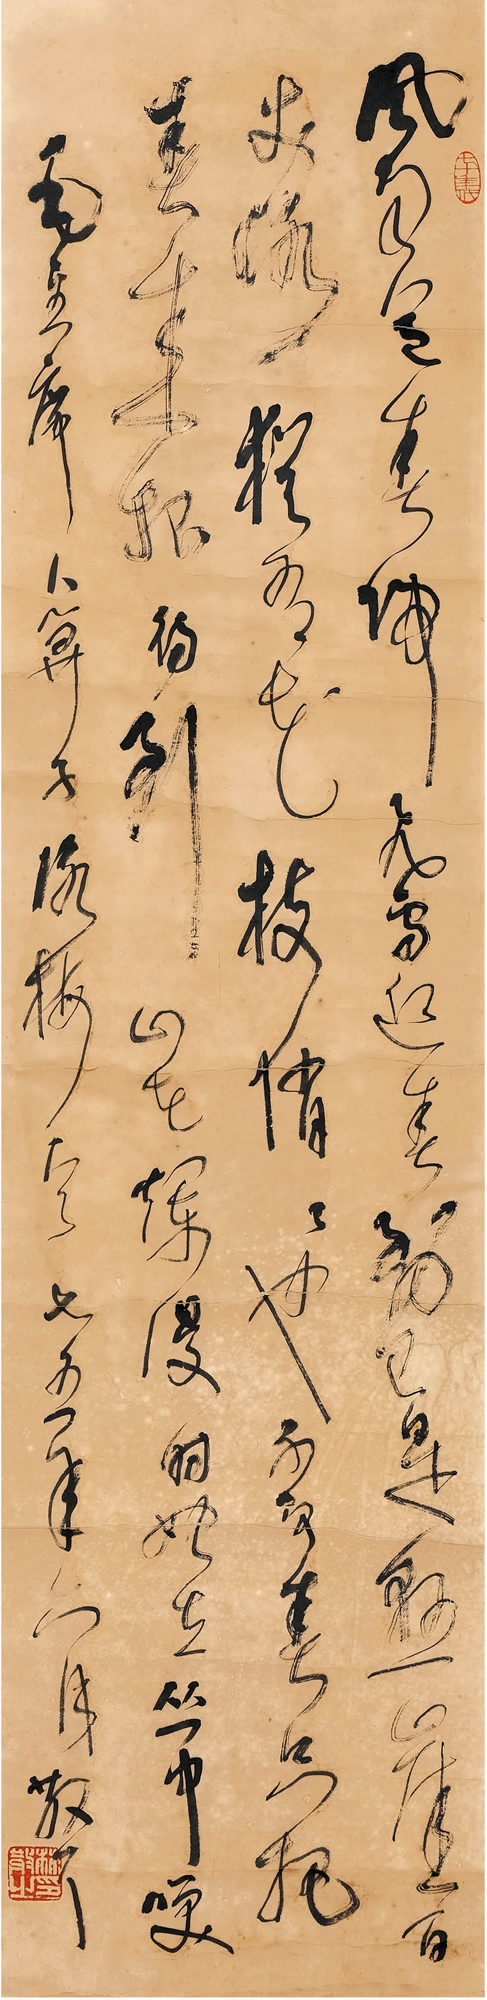 风雨送春归飞雪迎春到已是悬崖百
丈冰犹有花枝俏俏也不争春只把
春来报待到山花烂漫时她在丛中笑
毛主席卜算子咏梅句七五年六月散耳
林散之印